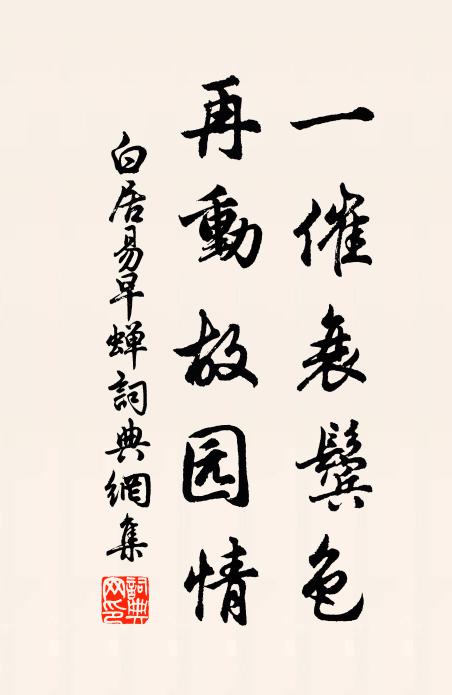 一催衰鬓色
再動故园情
白居易早蝉詞典網集
詞典网印